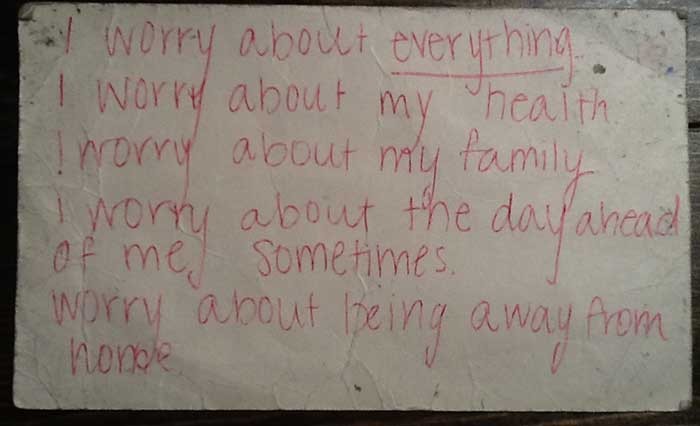 I worry about everything.
I worry about my health
I worry about my family
I worry about the day ahead
of me, sometimes.
worry about being away from
home